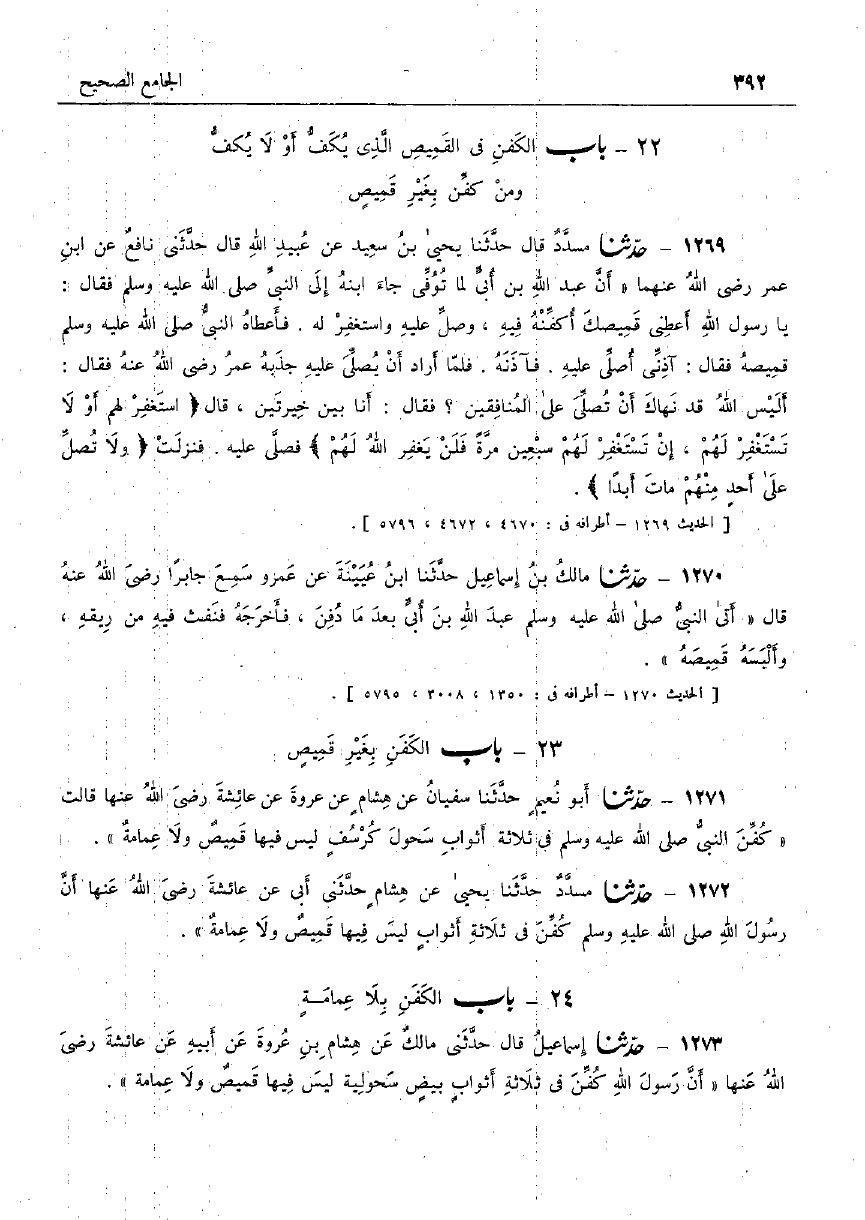 ٣٩٢ الجامع الصحيح
٢٢ – باب الكَفَنِ فى القَمِيصِ الَّذِى يُكَفُّ أَوْ لَا يُكفُّ
ومنْ كفِّن بِغَيْرِ قَمِيصٍ
١٢٦٩ – حدّثنا مسدَّدٌ قال حدَّثَنا يحيىٰ بنُ سعِيد عن عُبيدِ اللهِ قال حدَّثَنى نافعٌ عن ابنِ
عمر رضى اللهُ عنهما « أَنَّ عبد اللهِ بن أُبىٍّ لما تُوُفِّى جاءَ ابنهُ إِلَى النبىِّ صلى الله عليه وسلم فقال :
يا رسول اللهِ أَعطِنِى قَمِيصكَ أُكفِّنْهُ فِيهِ ، وصلِّ عليهِ واستغفِرْ له . فأَعطاهُ النبىُّ صلى الله عليه وسلم
قمِيصهُ فقال : آذِنِّى أُصلِّى عليهِ . فآذَنَهُ . فلمّا أَراد أَنْ يُصلِّىَ عليهِ جذَبهُ عمرُ رضى اللهُ عنهُ فقال :
أَلَيْس اللهُ قد نَهاكَ أَنْ تُصلِّىَ علىٰ المُنافِقين ؟ فقال : أَنا بين خِيرتَين ، قال ﴿ استَغفِرْ لهم أَوْ لَا
تَسْتَغْفِرْ لَهُمْ ، إِنْ تَسْتَغْفِرْ لَهُمْ سبْعِين مرَّةً فَلَنْ يَغفِر اللهُ لَهُمْ ﴾ فصلَّى عليه . فنزلَتْ ﴿ ولَا تُصلِّ
علَىٰ أَحدٍ مِنْهُمْ ماتَ أَبدًا ﴾ .
[ الحديث ١٢٦٩ – أطرافه فى : ٤٦٧٠ ، ٤٦٧٢ ، ٥٧٩٦ ] .
١٢٧٠ – حدّثنا مالكُ بنُ إِسماعِيل حدَّثَنا ابنُ عُيَيْنَةَ عن عَمرو سَمِعَ جابرًا رضىَ اللهُ عنهُ
قال « أَتَىٰ النبىُّ صلىٰ الله عليه وسلم عبدَ اللهِ بنَ أُبىٍّ بعدَ مَا دُفِنَ ، فأَخرَجَهُ فنَفث فيهِ من رِيقهِ ،
وأَلْبَسَهُ قَمِيصَهُ » .
[ الحديث ١٢٧٠ – أطرافه فى : ١٣٥٠ ، ٣٠٠٨ ، ٥٧٩٥ ] .
٢٣ – باب الكَفَنِ بِغَيْرِ قَمِيصٍ
١٢٧١ – حدّثنا أَبو نُعيمٍ حدَّثَنا سفيانُ عن هِشامٍ عن عروةَ عن عائِشةَ رضىَ اللهُ عنها قالت
« كُفِّنَ النبىُّ صلى الله عليه وسلم فى ثلاثة أَثوابِ سَحولَ كُرْسُفٍ ليس فيها قَمِيصٌ ولَا عِمامةٌ » .
١٢٧٢ – حدّثنا مسدَّدٌ حدَّثَنا يحيىٰ عن هِشامٍ حدَّثَنى أَبى عن عائشةَ رضىَ اللهُ عَنها أَنَّ
رسُولَ اللهِ صلى الله عليهِ وسلم كُفِّنَ فى ثلَاثةِ أَثوابٍ ليسَ فِيها قَمِيصٌ ولَا عِمامةٌ » .
٢٤ – باب الكَفَنِ بِلَا عِمامَـةٍ
١٢٧٣ – حدّثنا إِسماعيلُ قال حدَّثَنى مالكٌ عَن هِشامِ بنِ عُروةَ عَن أَبيهِ عَن عائشةَ رضىَ
اللهُ عَنها « أَنَّ رَسولَ اللهِ كُفِّنَ فى ثلَاثةِ أَثوابٍ بيضٍ سَحولِية ليسَ فِيها قَميصٌ ولَا عِمامة » .